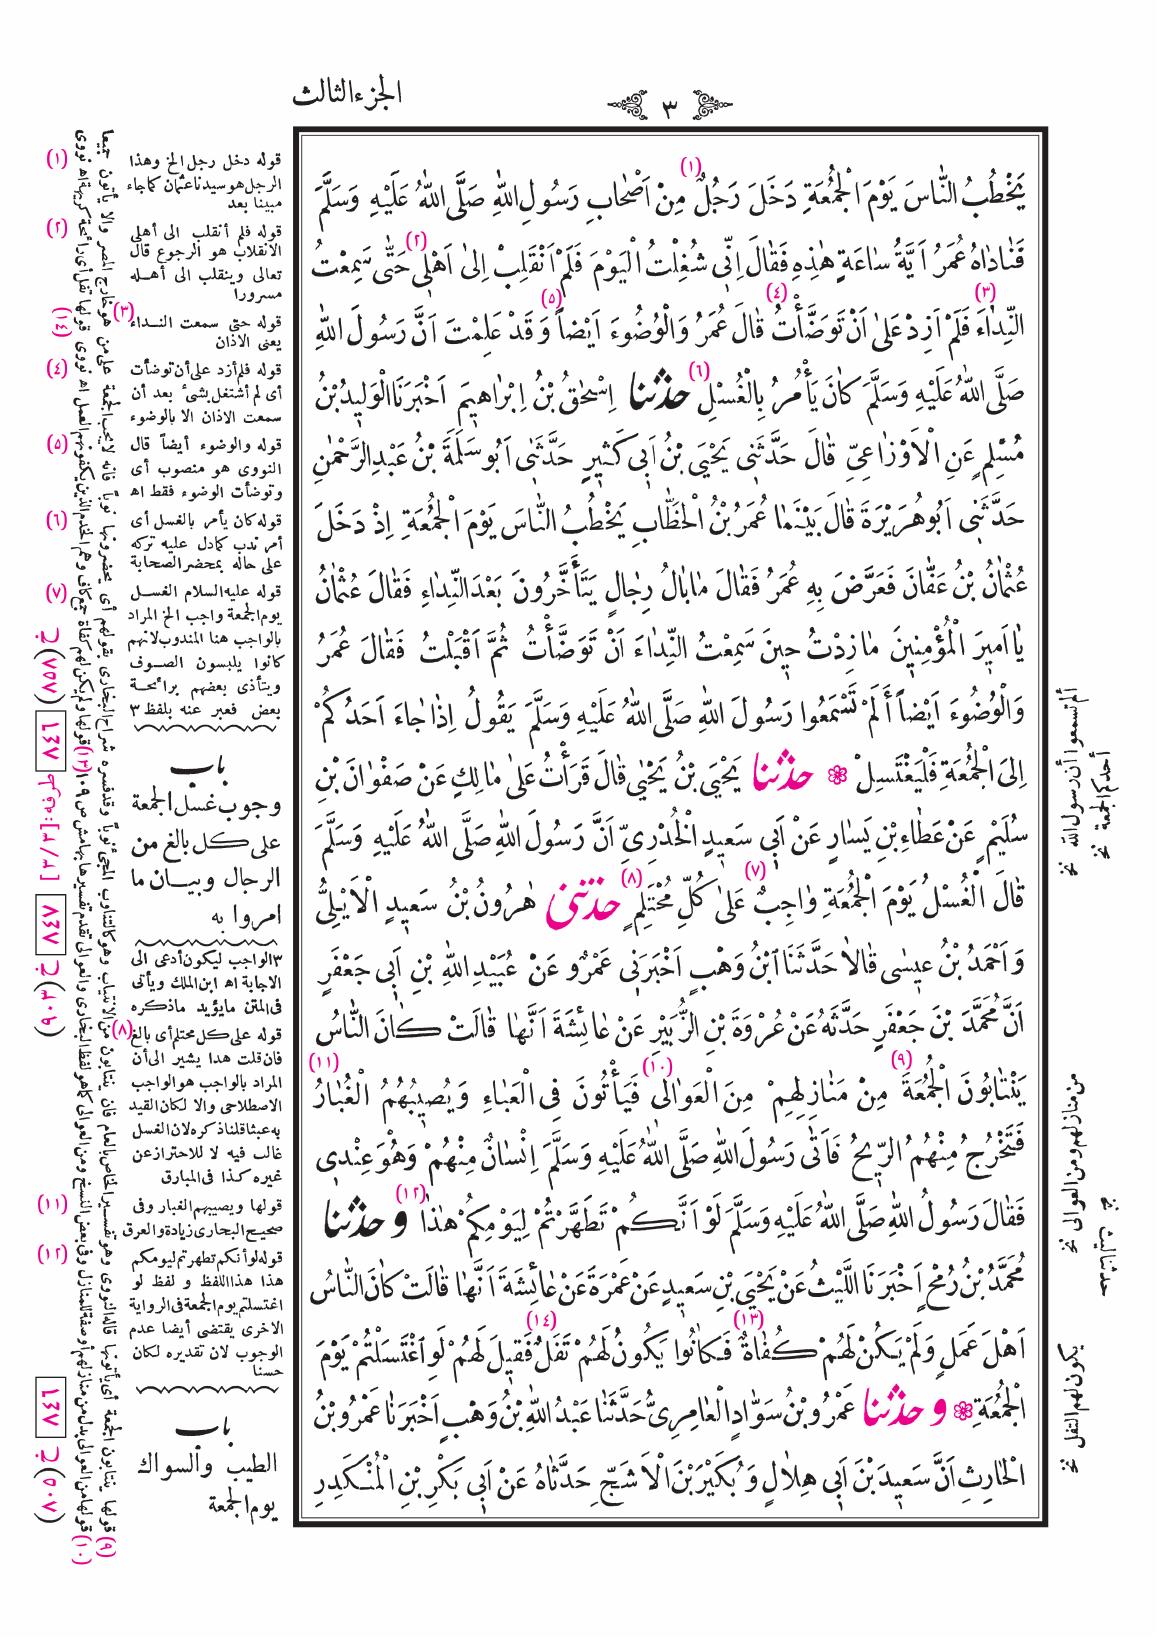 الجزء الثالث
٣
يَخْطُبُ النَّاسَ يَوْمَ الْجُمُعَةِ دَخَلَ رَجُلٌ (١) مِنْ اَصْحَابِ رَسُولِ اللّٰهِ صَلَّى اللّٰهُ عَلَيْهِ وَسَلَّمَ
فَنَادَاهُ عُمَرُ اَيَّةُ سَاعَةٍ هٰذِهِ فَقَالَ اِنِّى شُغِلْتُ الْيَوْمَ فَلَمْ اَنْقَلِبْ (٢) اِلىٰ اَهْلى حَتّٰى سَمِعْتُ
النِّدَاءَ (٣) فَلَمْ اَزِدْ عَلىٰ اَنْ تَوَضَّأْتُ (٤) قَالَ عُمَرُ وَالْوُضُوءَ اَيْضاً (٥) وَقَدْ عَلِمْتَ اَنَّ رَسُولَ اللّٰهِ
صَلَّى اللّٰهُ عَلَيْهِ وَسَلَّمَ كَانَ يَأْمُرُ بِالْغُسْلِ (٦) حدثنا اِسْحٰقُ بْنُ اِبْرَاهِيمَ اَخْبَرَنَا الْوَلِيدُ بْنُ
مُسْلِمٍ عَنِ الْاَوْزَاعِىِّ قَالَ حَدَّثَنِى يَحْيَى بْنُ اَبِى كَثِيرٍ حَدَّثَنِى اَبُو سَلَمَةَ بْنُ عَبْدِ الرَّحْمٰنِ
حَدَّثَنِى اَبُو هُرَيْرَةَ قَالَ بَيْنَمَا عُمَرُ بْنُ الْخَطَّابِ يَخْطُبُ النَّاسَ يَوْمَ الْجُمُعَةِ اِذْ دَخَلَ
عُثْمَانُ بْنُ عَفَّانَ فَعَرَّضَ بِهِ عُمَرُ فَقَالَ مَا بَالُ رِجَالٍ يَتَأَخَّرُونَ بَعْدَ النِّدَاءِ فَقَالَ عُثْمَانُ
يَا اَمِيرَ الْمُؤْمِنِينَ مَا زِدْتُ حِينَ سَمِعْتُ النِّدَاءَ اَنْ تَوَضَّأْتُ ثُمَّ اَقْبَلْتُ فَقَالَ عُمَرُ
وَالْوُضُوءَ اَيْضاً أَلَمْ تَسْمَعُوا رَسُولَ اللّٰهِ صَلَّى اللّٰهُ عَلَيْهِ وَسَلَّمَ يَقُولُ اِذَا جَاءَ اَحَدُكُمْ
اِلَى الْجُمُعَةِ فَلْيَغْتَسِلْ حدثنا يَحْيَى بْنُ يَحْيٰى قَالَ قَرَأْتُ عَلىٰ مَالِكٍ عَنْ صَفْوَانَ بْنِ
سُلَيْمٍ عَنْ عَطَاءِ بْنِ يَسَارٍ عَنْ اَبِى سَعِيدٍ الْخُدْرِىِّ اَنَّ رَسُولَ اللّٰهِ صَلَّى اللّٰهُ عَلَيْهِ وَسَلَّمَ
قَالَ الْغُسْلُ يَوْمَ الْجُمُعَةِ وَاجِبٌ (٧) عَلىٰ كُلِّ مُحْتَلِمٍ (٨) حدثنى هٰرُونُ بْنُ سَعِيدٍ الْاَيْلِىُّ
وَاَحْمَدُ بْنُ عِيسٰى قَالاَ حَدَّثَنَا ابْنُ وَهْبٍ اَخْبَرَنِى عَمْرٌو عَنْ عُبَيْدِ اللّٰهِ بْنِ اَبِى جَعْفَرٍ
اَنَّ مُحَمَّدَ بْنَ جَعْفَرٍ حَدَّثَهُ عَنْ عُرْوَةَ بْنِ الزُّبَيْرِ عَنْ عَائِشَةَ اَنَّهَا قَالَتْ كَانَ النَّاسُ
يَنْتَابُونَ الْجُمُعَةَ (٩) مِنْ مَنَازِلِهِمْ مِنَ الْعَوَالى (١٠) فَيَأْتُونَ فِى الْعَبَاءِ وَيُصِيبُهُمُ الْغُبَارُ (١١)
فَتَخْرُجُ مِنْهُمُ الرِّيحُ فَاَتٰى رَسُولَ اللّٰهِ صَلَّى اللّٰهُ عَلَيْهِ وَسَلَّمَ اِنْسَانٌ مِنْهُمْ وَهُوَ عِنْدِى
فَقَالَ رَسُولُ اللّٰهِ صَلَّى اللّٰهُ عَلَيْهِ وَسَلَّمَ لَوْ اَنَّكُمْ تَطَهَّرْتُمْ لِيَوْمِكُمْ هٰذَا (١٢) وحدثنا
مُحَمَّدُ بْنُ رُمْحٍ اَخْبَرَنَا اللَّيْثُ عَنْ يَحْيَى بْنِ سَعِيدٍ عَنْ عَمْرَةَ عَنْ عَائِشَةَ اَنَّهَا قَالَتْ كَانَ النَّاسُ
اَهْلَ عَمَلٍ وَلَمْ يَكُنْ لَهُمْ كُفَاةٌ (١٣) فَكَانُوا يَكُونُ لَهُمْ تَفَلٌ (١٤) فَقِيلَ لَهُمْ لَوِ اغْتَسَلْتُمْ يَوْمَ
الْجُمُعَةِ وحدثنا عَمْرُو بْنُ سَوَّادٍ الْعَامِرِىُّ حَدَّثَنَا عَبْدُ اللّٰهِ بْنُ وَهْبٍ اَخْبَرَنَا عَمْرُو بْنُ
الْحَارِثِ اَنَّ سَعِيدَ بْنَ اَبِى هِلَالٍ وَبُكَيْرَ بْنَ الْاَشَجِّ حَدَّثَاهُ عَنْ اَبِى بَكْرِ بْنِ الْمُنْكَدِرِ
ألم تسمعوا أن رسول الله نخ
أحدكم الجمعة نخ
من منازلهم ومن العوالى نخ
حدثنا ليث نخ
يكون لهم التفل نخ
(١) قوله دخل رجل الخ وهذا
الرجل هو سيدنا عثمان كما جاء
مبينا بعد
(٢) قوله فلم أنقلب الى أهلى
الانقلاب هو الرجوع قال
تعالى وينقلب الى أهله
مسرورا
(٣) قوله حتى سمعت النداء
يعنى الاذان
(٤) قوله فلم أزد على أن توضأت
أى لم أشتغل بشىء بعد أن
سمعت الاذان الا بالوضوء
(٥) قوله والوضوء أيضاً قال
النووى هو منصوب أى
وتوضأت الوضوء فقط اه
(٦) قوله كان يأمر بالغسل أى
أمر ندب كما دل عليه تركه
على حاله بمحضر الصحابة
(٧) قوله عليه السلام الغسل
يوم الجمعة واجب الخ المراد
بالواجب هنا المندوب لانهم
كانوا يلبسون الصوف
ويتأذى بعضهم برائحة
بعض فعبر عنه بلفظ ٣
باب
وجوب غسل الجمعة
على كل بالغ من
الرجال وبيان ما
امروا به
٣ الواجب ليكون أدعى الى
الاجابة اه ابن الملك ويأتى
فى المتن مايؤيد ماذكره
(٨) قوله على كل محتلم أى بالغ
فان قلت هذا يشير الى أن
المراد بالواجب هو الواجب
الاصطلاحى والا لكان القيد
به عبثا قلنا ذكره لان الغسل
غالب فيه لا للاحتراز عن
غيره كذا فى المبارق
(١١) قولها ويصيبهم الغبار وفى
صحيح البخارى زيادة والعرق
(١٢) قوله لو أنكم تطهرتم ليومكم
هذا هذا اللفظ و لفظ لو
اغتسلتم يوم الجمعة فى الرواية
الاخرى يقتضى أيضا عدم
الوجوب لان تقديره لكان
حسنا
باب
الطيب والسواك
يوم الجمعة
٨٤٧
٨٤٧